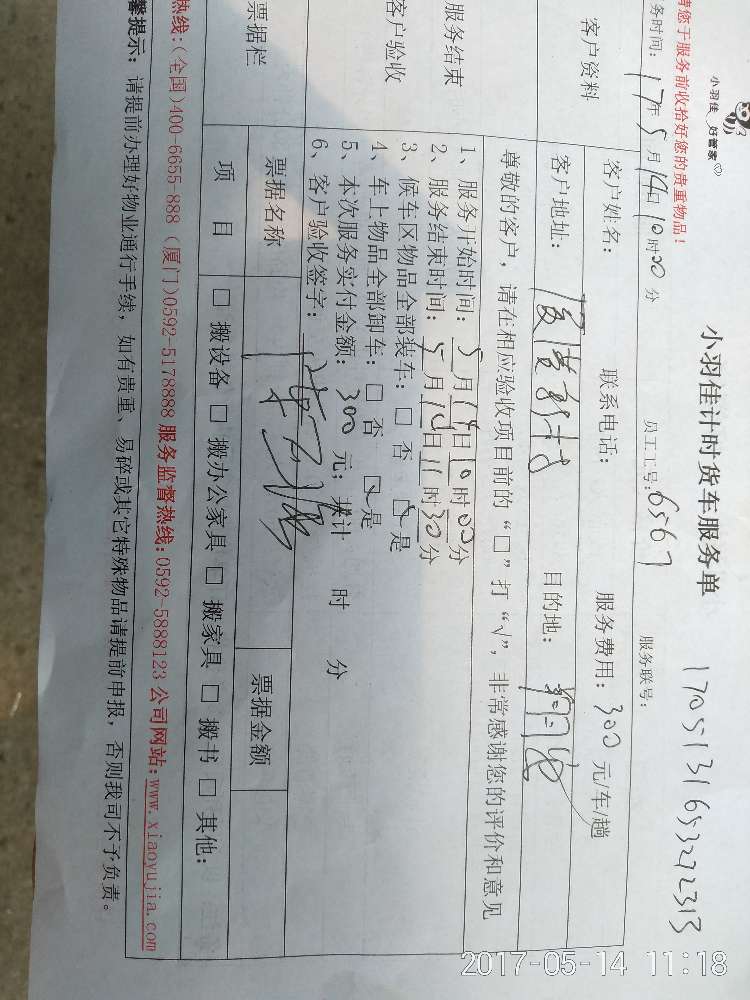 小羽佳 好管家
小羽佳计时货车服务单
请您于服务前收拾好您的贵重物品！
务时间：17年5月14日10时00分 员工工号：6567 服务联号：17051316532722313
客户资料
客户姓名： 联系电话： 服务费用：300元/车/趟
客户地址： 目的地：
尊敬的客户，请在相应验收项目前的“□”打“√”，非常感谢您的评价和意见
服务结束
客户验收
1、服务开始时间：5月14日10时00分
2、服务结束时间：5月14日11时30分
3、候车区物品全部装车：□ 否 ☑ 是
4、车上物品全部卸车：□ 否 ☑ 是
5、本次服务实付金额：300元；共计 时 分
6、客户验收签字：
票据栏
票据名称 票据金额
项 目 □ 搬设备 □ 搬办公家具 □ 搬家具 □ 搬书 □ 其他：
热线：(全国)400-6655-888 (厦门)0592-5178888 服务监督热线：0592-5888123 公司网站：www.xiaoyujia.com
馨提示：请提前办理好物业通行手续，如有贵重、易碎或其它特殊物品请提前申报，否则我司不予负责。
2017-05-14 11:18